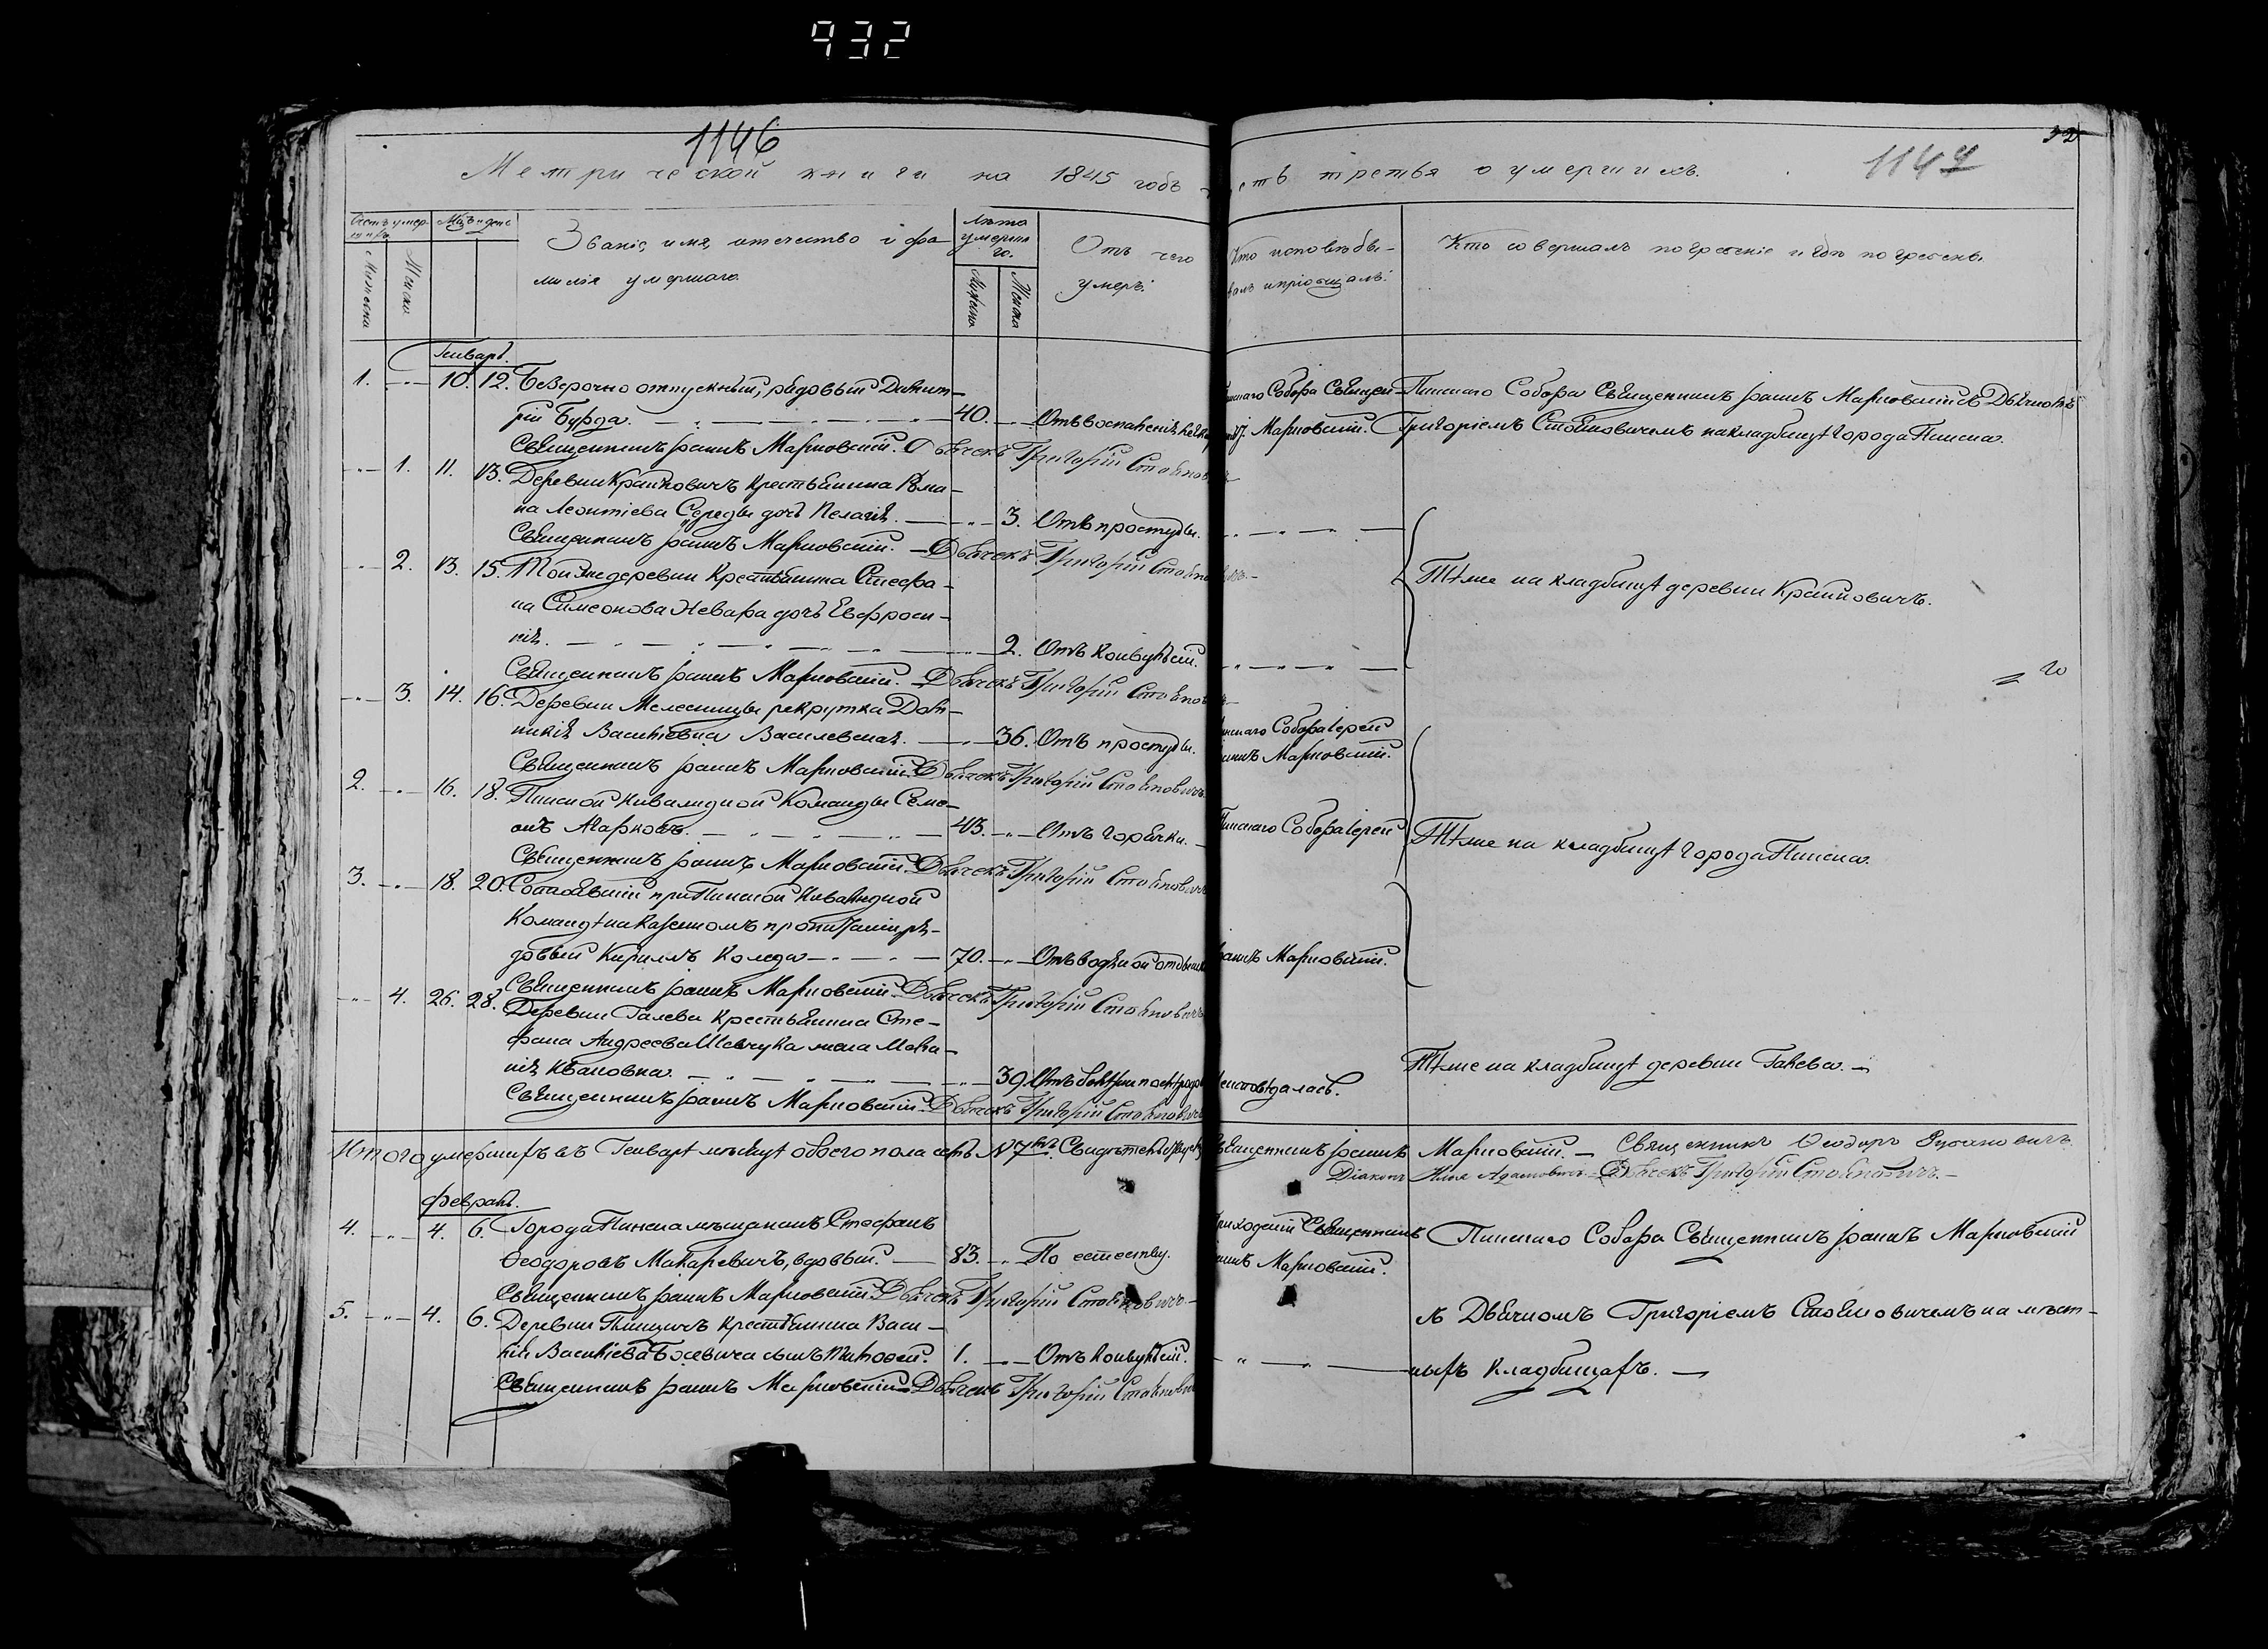 932
1146
Метрической книги на 1845 годъ
Счетъ умерших
Мѣц. и день
Званіе, имя, отечество и фа-
милія умершаго.
Лѣта умерша го.
Отъ чего
умеръ.
Мужеска
Женска
Мужеска
Женска
Генварь.
1. 10. 12. Безсрочно отпускный, рядовый Димит-
рій Бурда. 40. Отъ воспаленія
Священникъ Іоаннъ Марковскій. Дьячекъ Григорій Стояновичъ
1. 11. 13. Деревни Крайновичъ крестьянина Рома-
на Леонтіева Середы дочь Пелагія. 3. Отъ простуды.
Священникъ Іоаннъ Марковскій. Дьячекъ Григорій Стояновичъ
2. 13. 15. Той же деревни крестьянина Стефа-
на Симеонова Невара дочь Евфроси-
нія. 2. Отъ конвульсій.
Священникъ Іоаннъ Марковскій. Дьячекъ Григорій Стояновичъ
3. 14. 16. Деревни Мелесницы рекрутка Дом-
никія Васильевна Василевская. 36. Отъ простуды.
Священникъ Іоаннъ Марковскій. Дьячекъ Григорій Стояновичъ
2. 16. 18. Пинской Инвалидной Команды Семе-
онъ Марковъ. 43. Отъ горячки.
Священникъ Іоаннъ Марковскій. Дьячекъ Григорій Стояновичъ
3. 18. 20. Состоявшій при Пинской Инвалидной
Командѣ на казенномъ пропитаніи ря-
довый Кириллъ Коледа 70. Отъ водяной отдышки
Священникъ Іоаннъ Марковскій. Дьячекъ Григорій Стояновичъ
4. 26. 28. Деревни Галева крестьянина Сте-
фана Андреева Шевчука жена Мела-
нія Ивановна. 39. Отъ
Священникъ Іоаннъ Марковскій. Дьячекъ Григорій Стояновичъ
Итого умершихъ въ Генварѣ мѣсяцѣ обоего пола семь. N 7мь.
Февраль.
4. 4. 6. Города Пинска мѣщанинъ Стефанъ
Ѳеодоровъ Макаревичъ, вдовый. 83. По естеству.
Священникъ Іоаннъ Марковскій. Дьячекъ Григорій Стояновичъ.
5. 4. 6. Деревни крестьянина Васи-
лія Васильева сынъ Тимофей. 1. Отъ конвульсій.
Священникъ Іоаннъ Марковскій. Дьячекъ Григорій Стояновичъ
32
1147
часть третья о умершихъ.
Кто исповѣды-
валъ и пріобщалъ.
Кто совершалъ погребеніе и гдѣ погребены.
Пинскаго Собора Священ- Пинскаго Собора Священникъ Іоаннъ Марковскій съ Дьячкомъ
Марковскій. Григоріемъ Стояновичемъ на кладбищѣ города Пинска.
Тѣ же на кладбищѣ деревни Крайновичъ.
Пинскаго Собора Іерей
Іоаннъ Марковскій.
Пинскаго Собора Іерей
Тѣ же на кладбищѣ города Пинска.
Іоаннъ Марковскій.
Тѣ же на кладбищѣ деревни Галева.
Неисповѣдалась.
Священникъ Іоаннъ Марковскій. Священникъ Ѳеодоръ
Діаконъ Илья Адамовичъ Дьячекъ Григорій Стояновичъ.
Приходскій Священникъ
Іоаннъ Марковскій.
Пинскаго Собора Священникъ Іоаннъ Марковскій
съ Дьячкомъ Григоріемъ Стояновичемъ на мѣст-
ныхъ кладбищахъ.